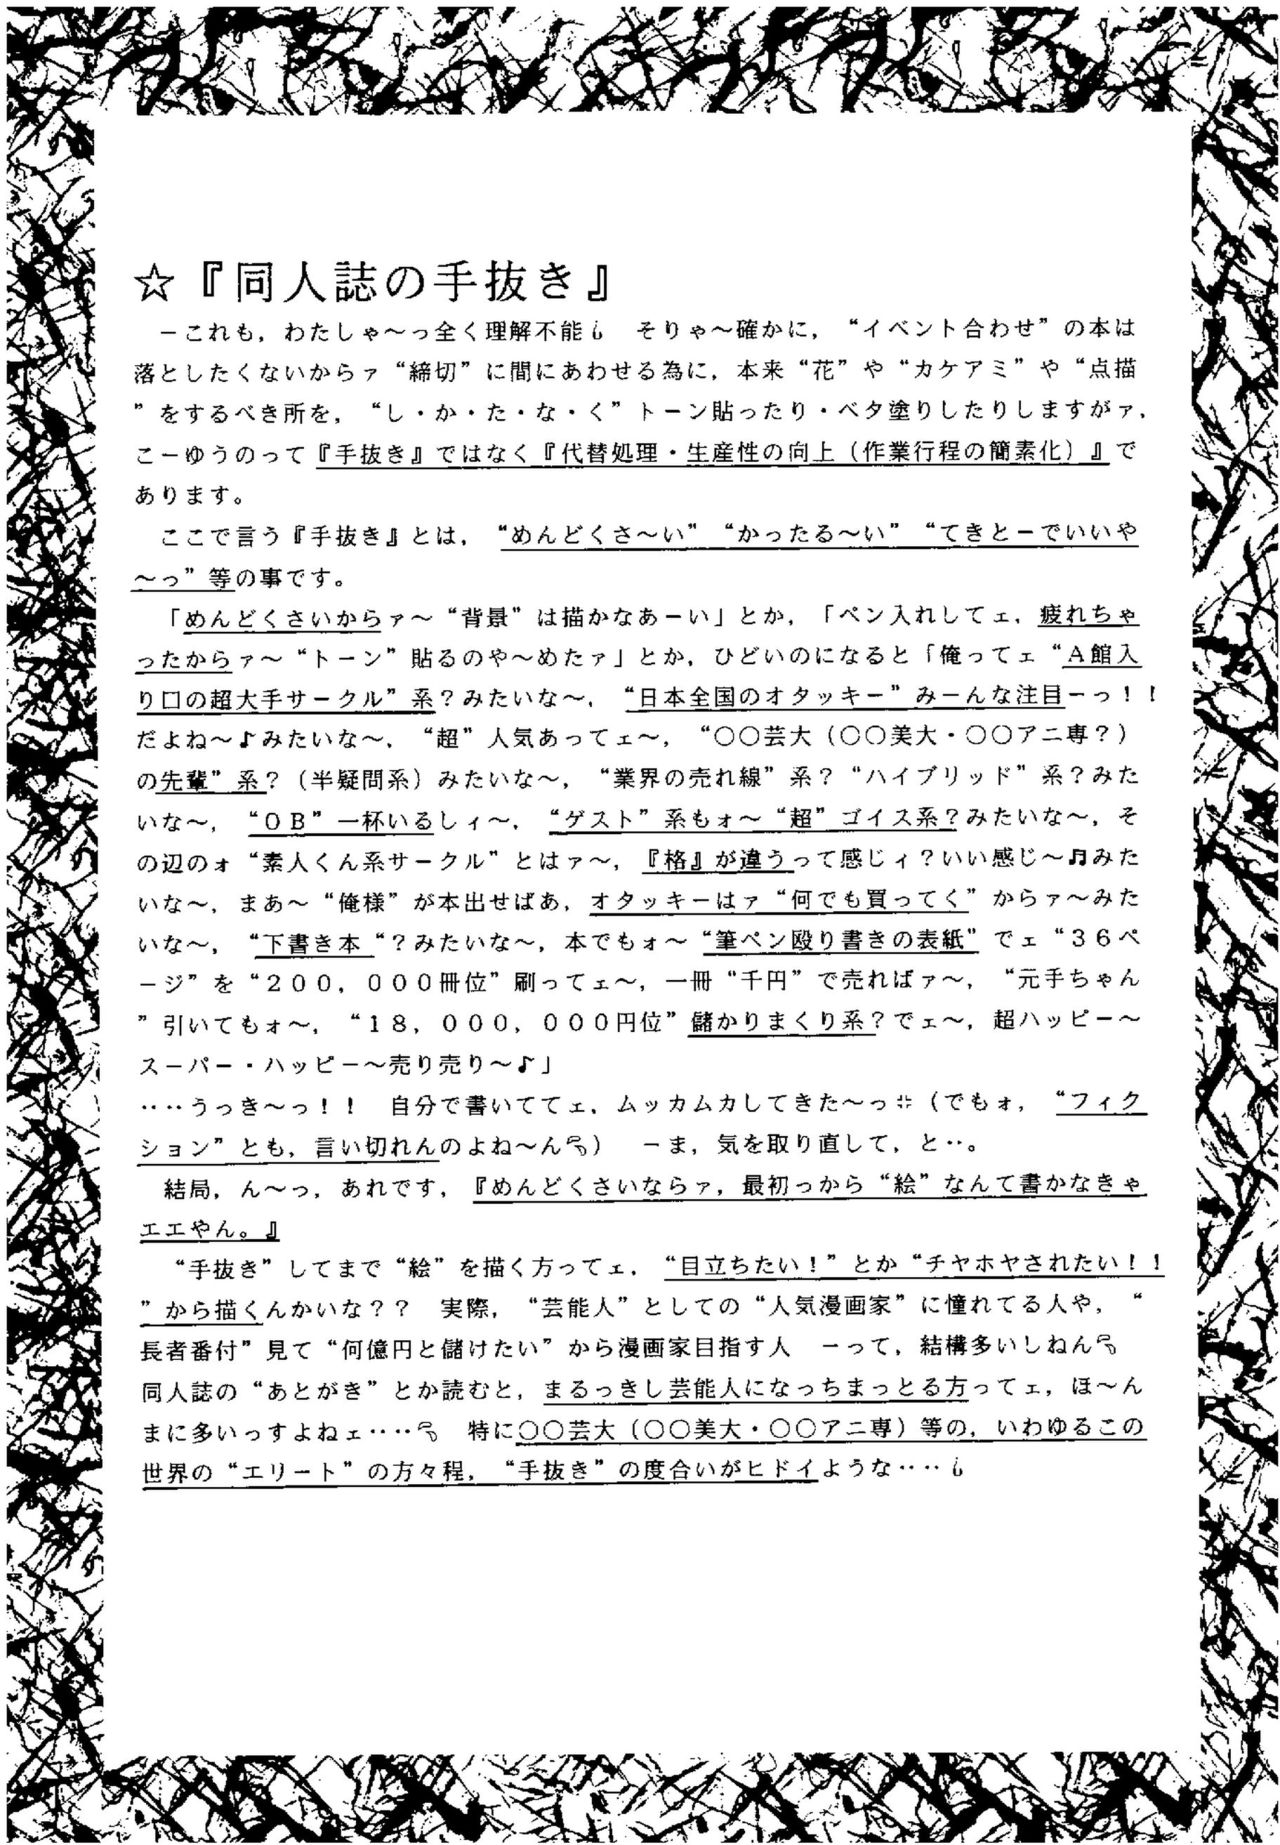 ☆『同人誌の手抜き』
－これも，わたしゃ～っ全く理解不能 そりゃ～確かに，“イベント合わせ”の本は
落としたくないからァ“締切”に間にあわせる為に，本来“花”や“カケアミ”や“点描
”をするべき所を，“し・か・た・な・く”トーン貼ったり・ベタ塗りしたりしますがァ，
こーゆうのって『手抜き』ではなく『代替処理・生産性の向上（作業行程の簡素化）』で
あります。
ここで言う『手抜き』とは，“めんどくさ～い”“かったる～い”“てきとーでいいや
～っ”等の事です。
「めんどくさいからァ～“背景”は描かなあーい」とか，「ペン入れしてェ，疲れちゃ
ったからァ～“トーン”貼るのや～めたァ」とか，ひどいのになると「俺ってェ“Ａ館入
り口の超大手サークル”系？みたいな～，“日本全国のオタッキー”みーんな注目ーっ！！
だよね～♪みたいな～，“超”人気あってェ～，“○○芸大（○○美大・○○アニ専？）
の先輩”系？（半疑問系）みたいな～，“業界の売れ線”系？“ハイブリッド”系？みた
いな～，“ＯＢ”一杯いるしィ～，“ゲスト”系もォ～“超”ゴイス系？みたいな～，そ
の辺のォ“素人くん系サークル”とはァ～，『格』が違うって感じィ？いい感じ～♬みた
いな～，まあ～“俺様”が本出せばあ，オタッキーはァ“何でも買ってく”からァ～みた
いな～，“下書き本“？みたいな～，本でもォ～“筆ペン殴り書きの表紙”でェ“３６ペ
ージ”を“２００，０００冊位”刷ってェ～，一冊“千円”で売ればァ～，“元手ちゃん
”引いてもォ～，“１８，０００，０００円位”儲かりまくり系？でェ～，超ハッピー～
スーパー・ハッピー～売り売り～♪」
‥‥うっき～っ！！ 自分で書いててェ，ムッカムカしてきた～っ（でもォ，“フィク
ション”とも，言い切れんのよね～ん） －ま，気を取り直して，と‥。
結局，ん～っ，あれです，『めんどくさいならァ，最初っから“絵”なんて書かなきゃ
エエやん。』
“手抜き”してまで“絵”を描く方ってェ，“目立ちたい！”とか“チヤホヤされたい！！
”から描くんかいな？？ 実際，“芸能人”としての“人気漫画家”に憧れてる人や，“
長者番付”見て“何億円と儲けたい”から漫画家目指す人 －って，結構多いしねん
同人誌の“あとがき”とか読むと，まるっきし芸能人になっちまっとる方ってェ，ほ～ん
まに多いっすよねェ‥‥ 特に○○芸大（○○美大・○○アニ専）等の，いわゆるこの
世界の“エリート”の方々程，“手抜き”の度合いがヒドイような‥‥